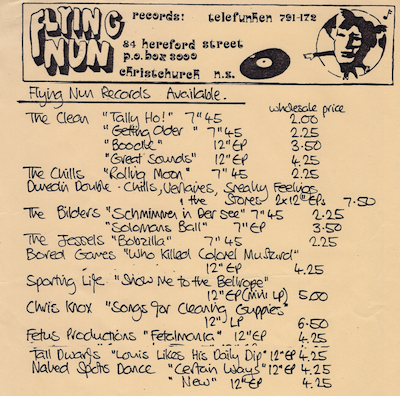 FLYING NUN
records! telefunken 791-172
84 hereford street
p.o.box 3000
christchurch n.z.
Flying Nun Records Available.
wholesale price
The Clean "Tally Ho!" 7"45 2.00
"Getting Older" 7"45 2.25
"Boodle" 12"EP 3.50
"Great Sounds" 12"EP 4.25
The Chills "Rolling Moon" 7"45 2.25
Dunedin Double - Chills, Verlaines, Sneaky Feelings,
& the Stones 2x12"EPs 7.50
The Bilders "Schwimmen in Der See" 7"45 2.25
"Solomans Ball" 7"EP 3.50
The Jessels "Bobzilla" 7"45 2.25
Bored Games "Who Killed Colonel Mustard"
12"EP 4.25
Sporting Life "Show Me to the Bellrope"
12"EP(mini LP) 5.00
Chris Knox "Songs for Cleaning Guppies"
12" LP 6.50
Fetus Productions "Fetalmania" 12"EP 4.25
Tall Dwarfs "Louis Likes His Daily Dip" 12"EP 4.25
Naked Spots Dance "Certain Ways" 12"EP 4.25
"New" 12"EP 4.25